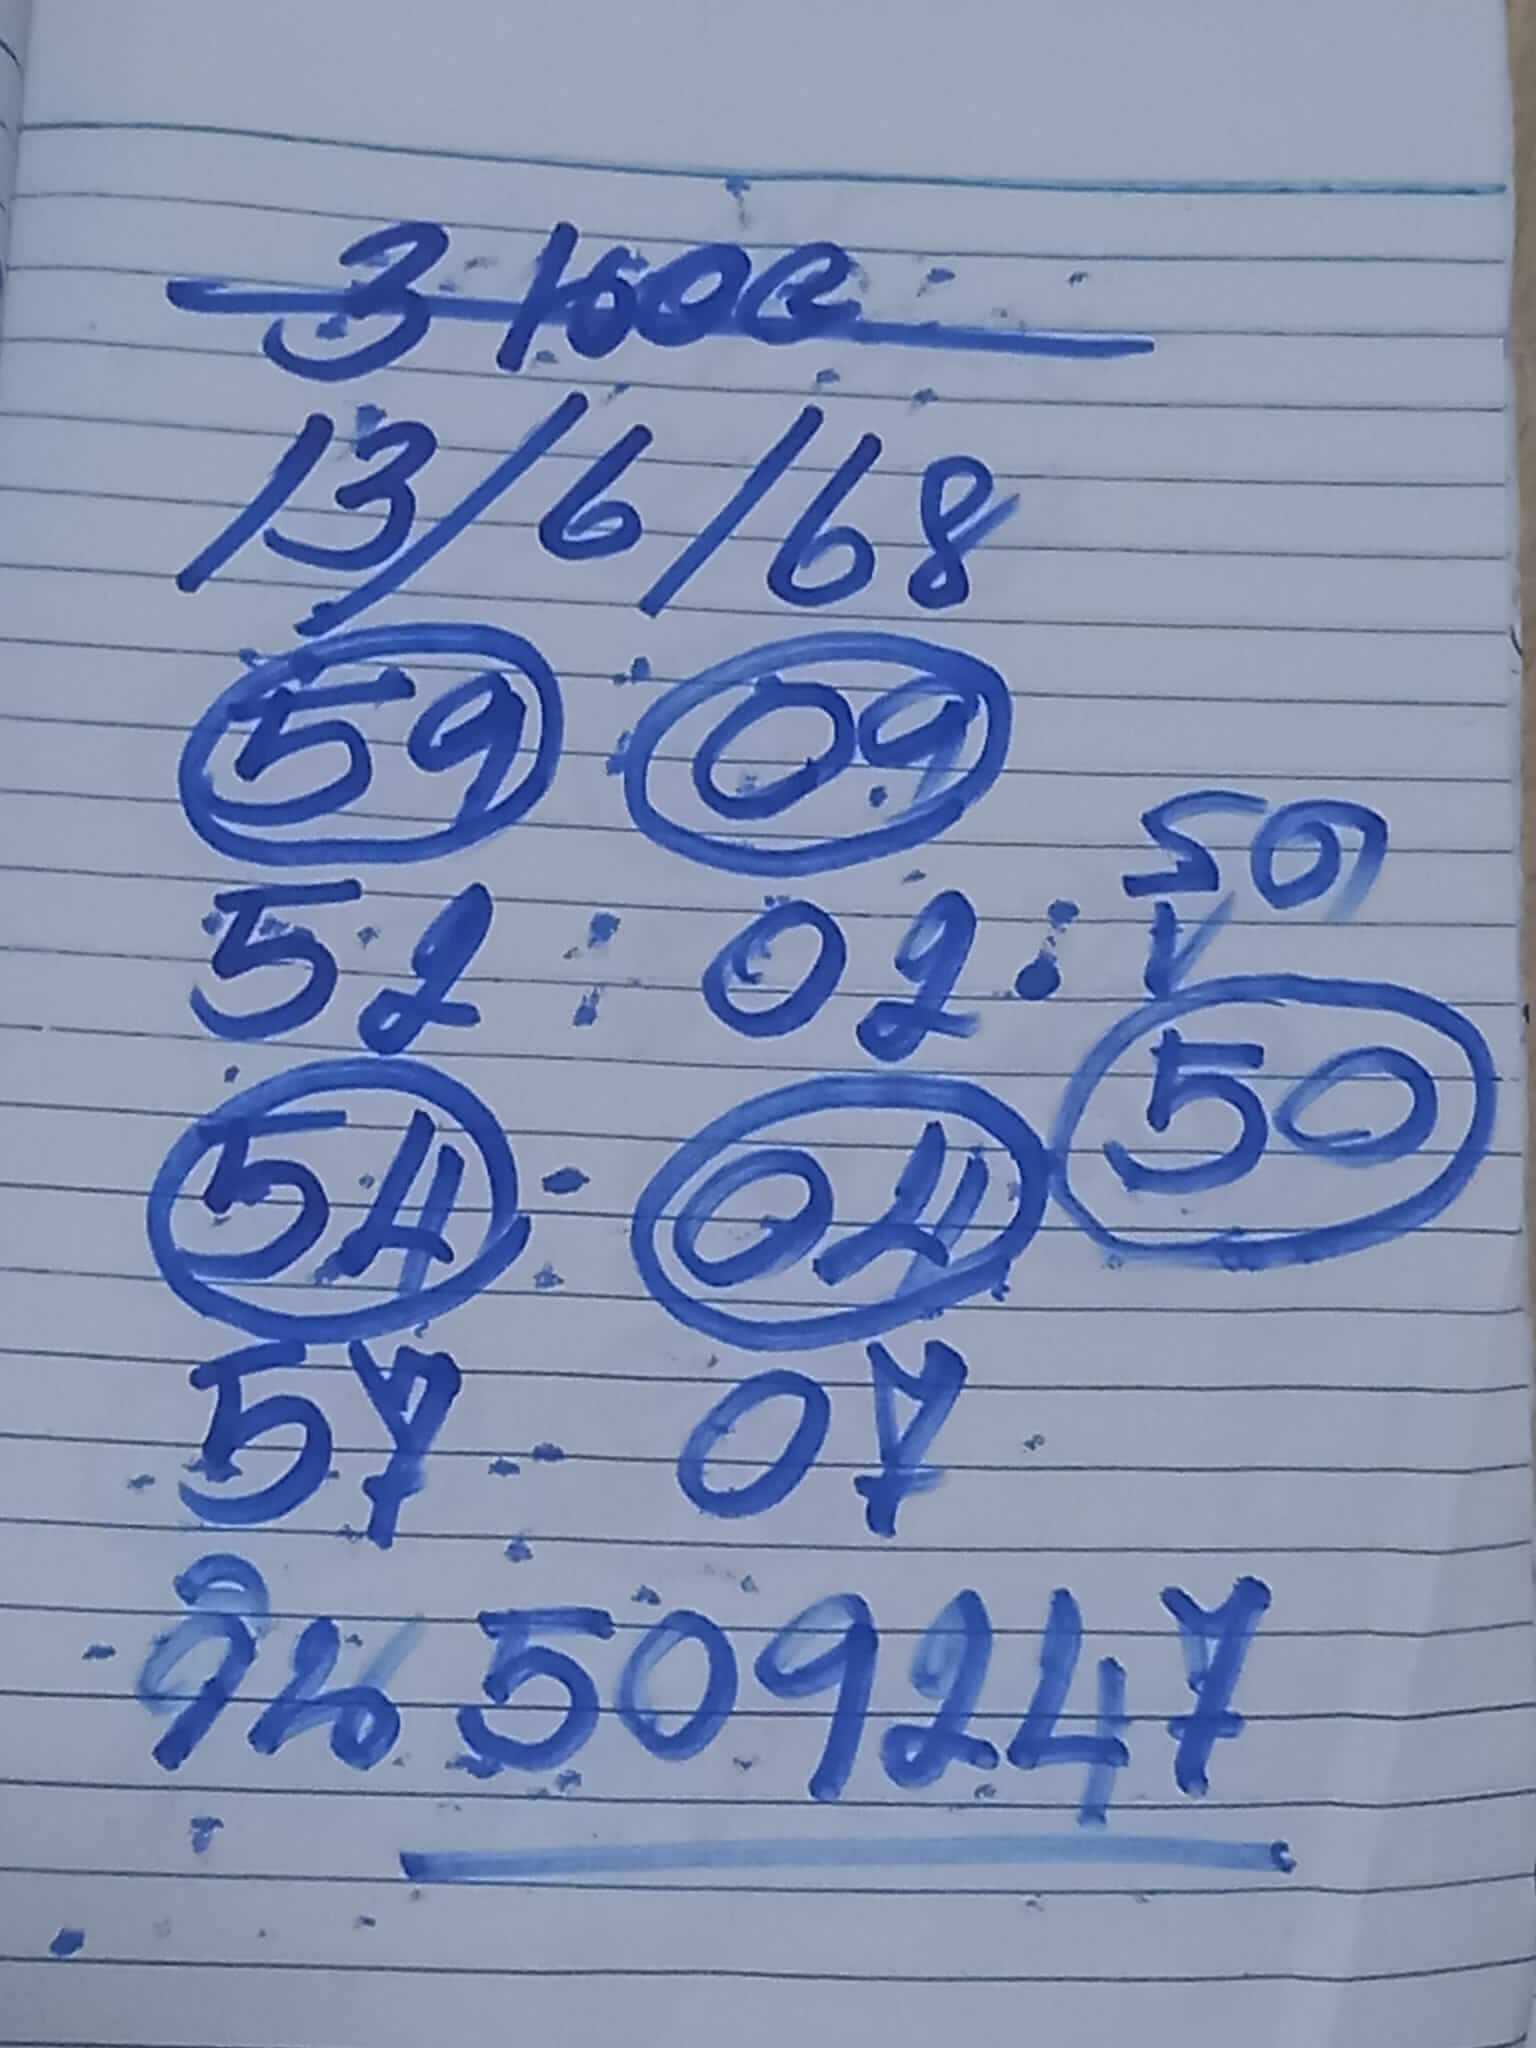 3 ยอด
13/6/68
59 09
52 : 02 : รูด
54 - 04 50
57 - 07
วิน 509247